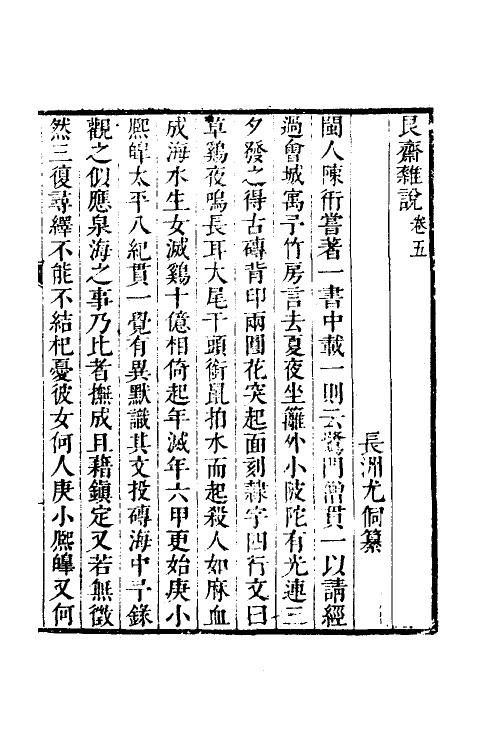 艮齋雜說卷五
長洲尤侗纂
閩人陳衎嘗著一書中載一則云鷺門僧貫一以請經
過會城寓予竹房言去夏夜坐籬外小陂陀有光連三
夕發之得古磚背印兩圓花突起面刻隸字四行文曰
草鷄夜鳴長耳大尾干頭銜鼠拍水而起殺人如麻血
成海水生女滅鷄十億相倚起年滅年六甲更始庚小
熈皡太平八紀貫一覺有異默識其文投磚海中予錄
觀之似應泉海之事乃比者撫成且藉鎮定又若無徵
然三復尋繹不能不結杞憂彼女何人庚小熈皡又何